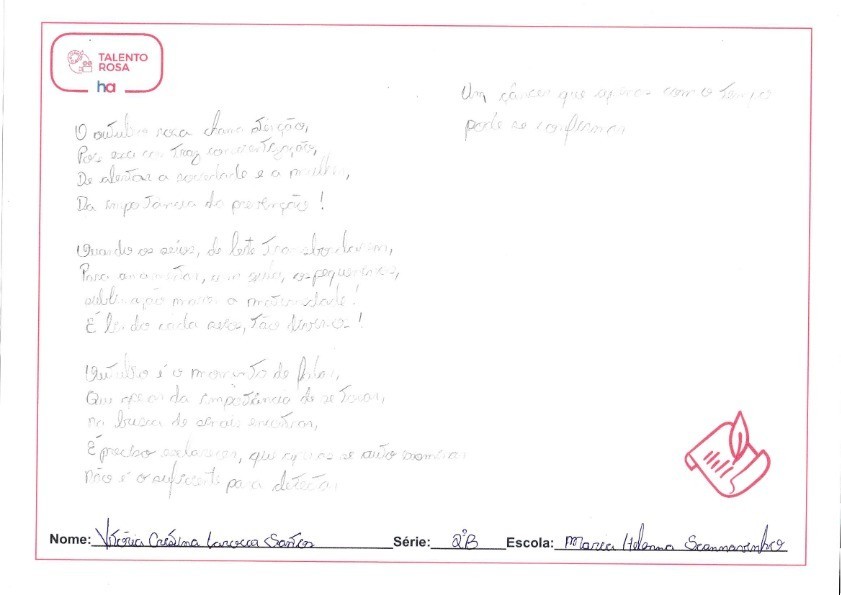 TALENTO
ROSA
ha
O outubro rosa chama atenção,
Pois sua cor traz conscientização,
De alertar a sociedade e a mulher,
Da importância da prevenção!
Quando os seios, de leite transbordavam,
Para amamentar, um seio, os pequeninos,
sublimação maior a maternidade!
É lindo cada seio, tão diversos!
Outubro é o momento de falar,
Que apesar da importância de se tocar,
na busca de sinais encontrar,
É preciso esclarecer, que apenas se auto examinar
Não é o suficiente para detectar
Um câncer que apenas com o tempo
pode se confirmar
Nome: Vitória Cristina Santos
Série: 2ºB
Escola: Maria Helena Scannavinho